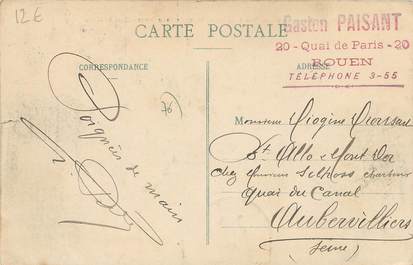 12€
CARTE POSTALE
Gaston PAISANT
20 - Quai de Paris - 20
ROUEN
TÉLÉPHONE 3-55
CORRESPONDANCE
ADRESSE
76
Poignées de main
Monsieur Diogène
chez Monsieur
Quai du Canal
Aubervilliers
(Seine)